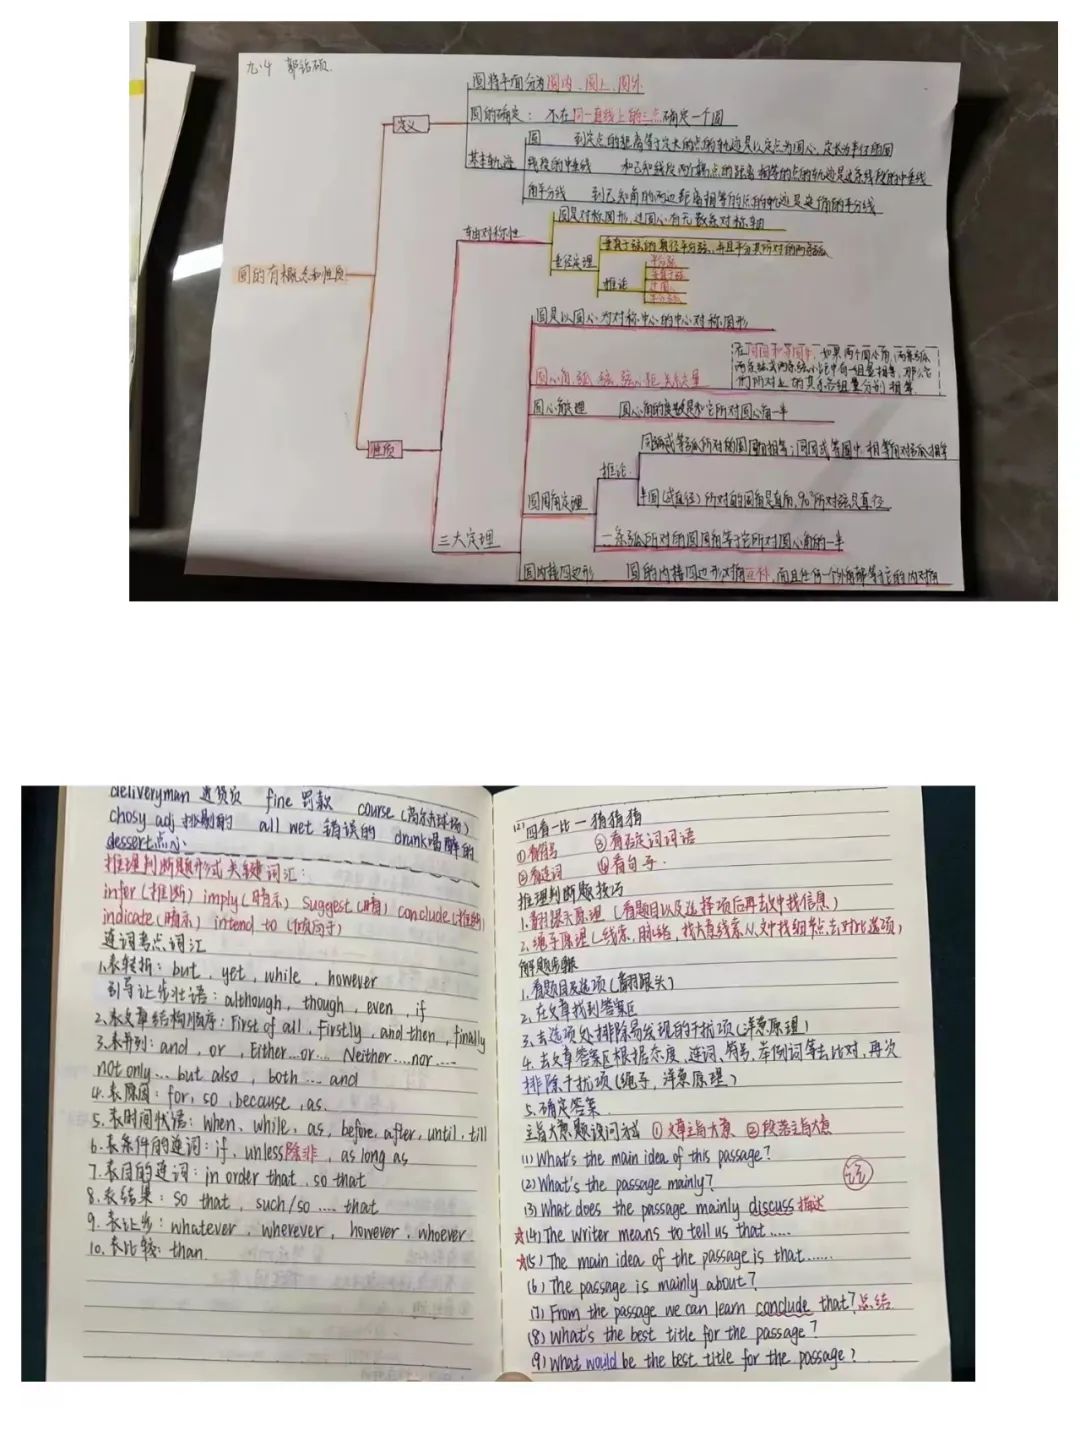 九.4
圆将平面分为圆内、圆上、圆外
定义
圆的确定： 不在同一直线上的三点确定一个圆
圆 到定点的距离等于定长的点的轨迹是以定点为圆心，定长为半径的圆
基本轨迹 线段的中垂线 和已知线段两个端点的距离相等的点的轨迹是这条线段的中垂线
角平分线 到已知角的两边距离相等的点的轨迹是这个角的平分线
圆的有概念和性质
轴对称性
圆是对称图形，过圆心有无数条对称轴
垂径定理
垂直于弦的直径平分弦，并且平分其所对的两条弧
推论
平分弦
垂直于弦
过圆心
平分弧
性质
圆是以圆心为对称中心的中心对称图形
圆心角、弧、弦、弦心距
在同圆和等圆中，如果两个圆心角，两条弧
圆心角定理 圆心角的度数是和它所对圆心角一半
推论
圆周角定理
半圆（或直径）所对的圆周角是直角，90°所对弦是直径
一条弧所对的圆周角等于它所对圆心角的一半
三大定理
圆内接四边形 圆的内接四边形对角互补，而且任何一个外角都等于它的内对角
deliveryman 送货员 fine 罚款 course（高尔夫球场）
chosy adj 挑剔的 all wet 错误的 drunk喝醉的
dessert点心
推理判断题形式关键词汇：
infer（推断）imply（暗示）suggest（暗）conclude（推断）
indicate（暗示）intend to（倾向于）
连词考点词汇
1.表转折：but，yet，while，however
引导让步状语：although，though，even，if
2.表文章结构顺序：First of all，Firstly，and then，finally
3.表并列：and，or，Either...or... Neither....nor....
not only... but also，both... and
4.表原因：for，so，because，as.
5.表时间状语：when、while，as，before，after，until，till
6.表条件的连词：if，unless除非，as long as
7.表目的连词：in order that，so that
8.表结果：so that，such/so .... that
9.表让步：whatever，wherever，however，whoever
10.表比较：than.
(2)四看一比一猜猜猜
①看符号 ③看否定词词语
②看连词 ④看句子.
推理判断题技巧
1.翻跟头原理（看题目以及选择项后再去文中找信息）
2.绳子原理
解题步骤
1.看题目及选项（翻跟头）
2.在文章找到答案区
3.去选项处排除易发现的干扰项（洋葱原理）
4.去文章答案区根据态度、连词、符号、举例词等去比对，再次
排除干扰项（绳子，洋葱原理）
5.确定答案.
主旨大意题设问方式 ①文章主旨大意 ②段落主旨大意
(1)What's the main idea of this passage?
(2)What's the passage mainly?
(3)What does the passage mainly discuss描述
☆(4)The writer means to tell us that.....
☆(5)The main idea of the passage is that......
(6)The passage is mainly about?
(7)From the passage we can learn conclude that?总结
(8)What's the best title for the passage?
(9)What would be the best title for the passage?